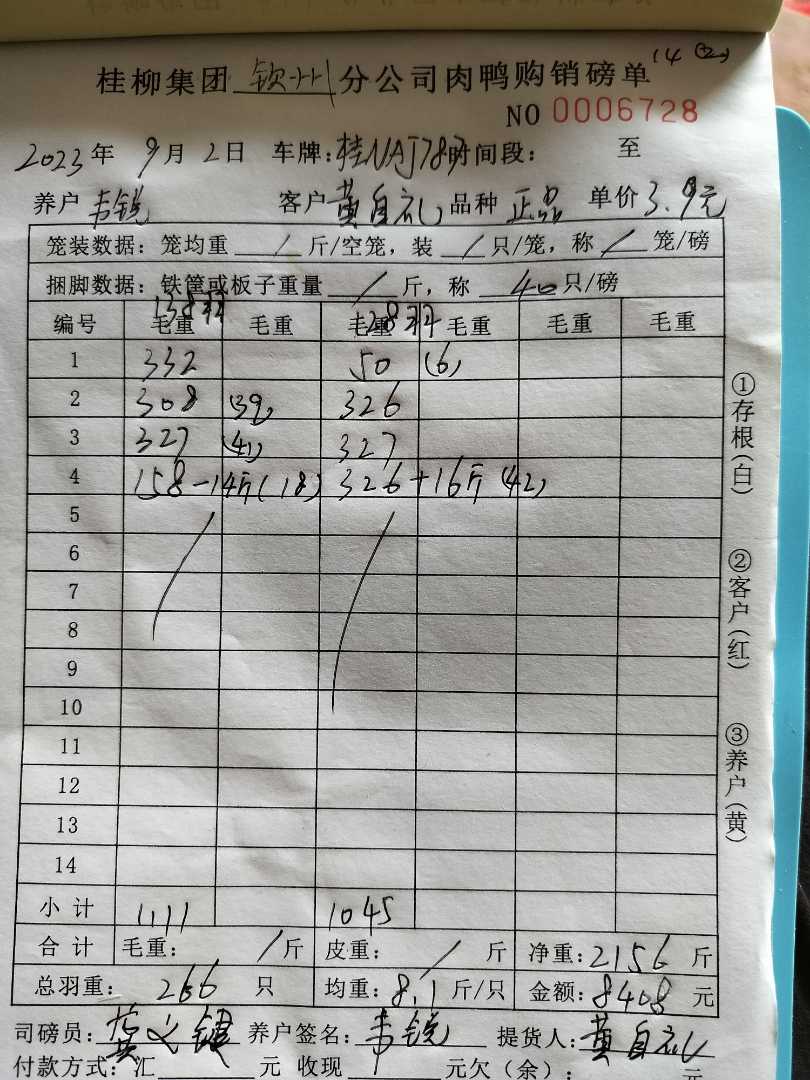 桂柳集团 钦州 分公司肉鸭购销磅单 14 (2)
NO 0006728
2023 年 9 月 2 日 车牌: 桂NAJ787 时间段: 至
养户 韦锐 客户 黄自礼 品种 正品 单价 3.9元
笼装数据: 笼均重 / 斤/空笼, 装 / 只/笼, 称 / 笼/磅
捆脚数据: 铁筐或板子重量 / 斤, 称 40 只/磅
138羽 128羽
编号 毛重 毛重 毛重 毛重 毛重 毛重
1 332 50 (6)
2 308 (39) 326
3 327 (41) 327
4 158-14斤(18) 326+16斤(42)
5
6
7
8
9
10
11
12
13
14
小计 1111 1045
合计 毛重: / 斤 皮重: / 斤 净重: 2156 斤
总羽重: 266 只 均重: 8.1 斤/只 金额: 8408 元
司磅员: 养户签名: 韦锐 提货人: 黄自礼
付款方式: 汇 元 收现 元欠(余): 元
①存根(白)
②客户(红)
③养户(黄)